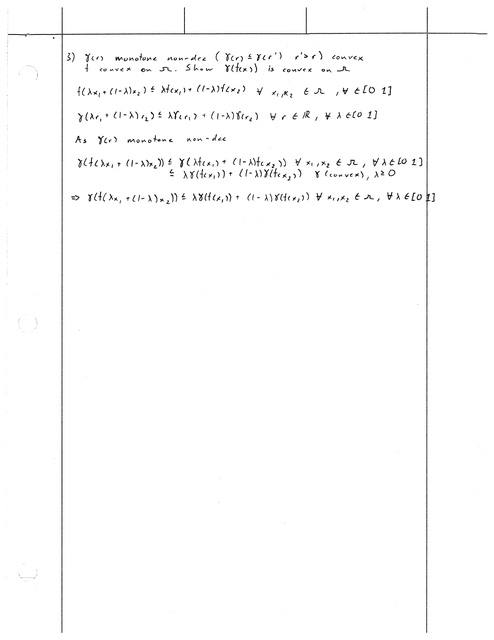 3) γ(r) monotone non-dec (γ(r) ≤ γ(r') r'>r) convex
f convex on Ω. Show γ(f(x)) is convex on Ω
f(λx₁ + (1-λ)x₂) ≤ λf(x₁) + (1-λ)f(x₂) ∀ x₁,x₂ ∈ Ω, ∀ ∈ [0 1]
γ(λr₁ + (1-λ)r₂) ≤ λγ(r₁) + (1-λ)γ(r₂) ∀ r ∈ ℝ, ∀ λ ∈ [0 1]
As γ(r) monotone non-dec
γ(f(λx₁ + (1-λ)x₂)) ≤ γ(λf(x₁) + (1-λ)f(x₂)) ∀ x₁,x₂ ∈ Ω, ∀ λ ∈ [0 1]
≤ λγ(f(x₁)) + (1-λ)γ(f(x₂)) γ (convex), λ ≥ 0
⇒ γ(f(λx₁ + (1-λ)x₂)) ≤ λγ(f(x₁)) + (1-λ)γ(f(x₂)) ∀ x₁,x₂ ∈ Ω, ∀ λ ∈ [0 1]